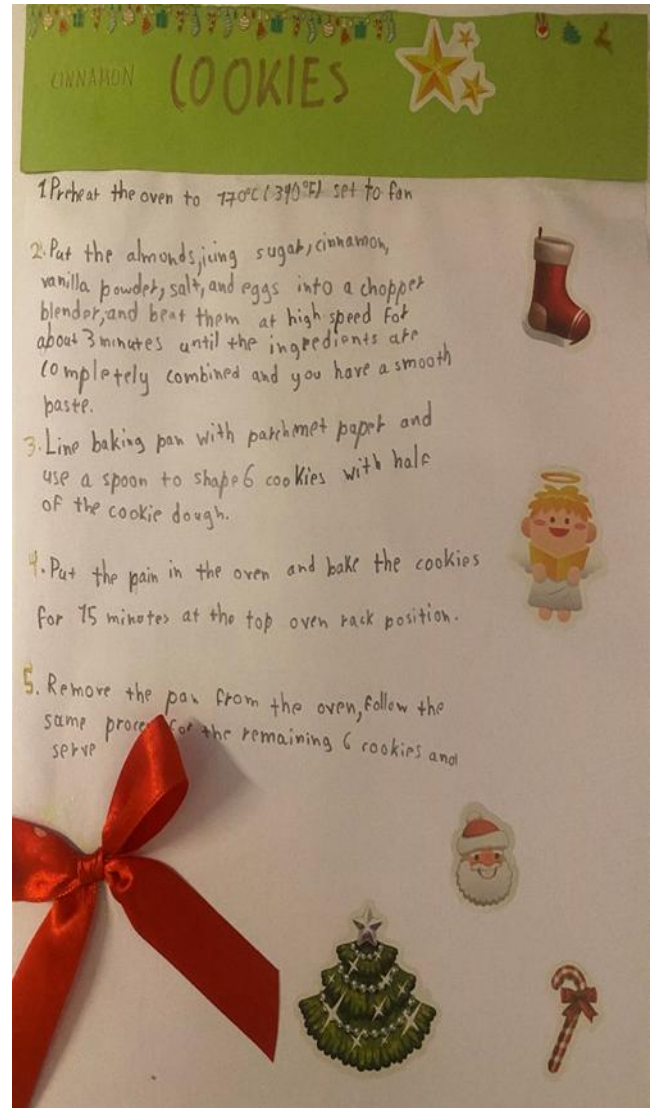 CINNAMON COOKIES
1 Preheat the oven to 170°C (340°F) set to fan
2. Put the almonds, icing sugar, cinnamon,
vanilla powder, salt, and eggs into a chopper
blender, and beat them at high speed for
about 3 minutes until the ingredients are
completely combined and you have a smooth
paste.
3. Line baking pan with parchmet paper and
use a spoon to shape 6 cookies with half
of the cookie dough.
4. Put the pain in the oven and bake the cookies
for 15 minutes at the top oven rack position.
5. Remove the pan from the oven, follow the
same for the remaining 6 cookies and
serve